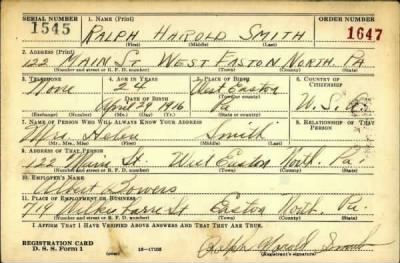 SERIAL NUMBER 1. NAME (Print) ORDER NUMBER
1545 RALPH HAROLD SMITH 1647
(First) (Middle) (Last)
2. ADDRESS (Print)
122 MAIN ST WEST EASTON NORTH. PA
(Number and street or R. F. D. number) (Town) (County) (State)
3. TELEPHONE 4. AGE IN YEARS 5. PLACE OF BIRTH 6. COUNTRY OF CITIZENSHIP
None 24 West Easton
DATE OF BIRTH (Town or county)
April 29 1916 Pa U.S.A.
(Exchange) (Number) (Mo.) (Day) (Yr.) (State or country)
7. NAME OF PERSON WHO WILL ALWAYS KNOW YOUR ADDRESS 8. RELATIONSHIP OF THAT PERSON
Mrs. Helen Smith
(Mr., Mrs., Miss) (First) (Middle) (Last)
9. ADDRESS OF THAT PERSON
122 Main St. West Easton North. Pa.
(Number and street or R. F. D. number) (Town) (County) (State)
10. EMPLOYER'S NAME
Albert
11. PLACE OF EMPLOYMENT OR BUSINESS
719 St Easton North. Pa.
(Number and street or R. F. D. number) (Town) (County) (State)
I AFFIRM THAT I HAVE VERIFIED ABOVE ANSWERS AND THAT THEY ARE TRUE.
REGISTRATION CARD
D. S. S. Form 1 (over) 16—17105 Ralph Harold Smith
(Registrant's signature)